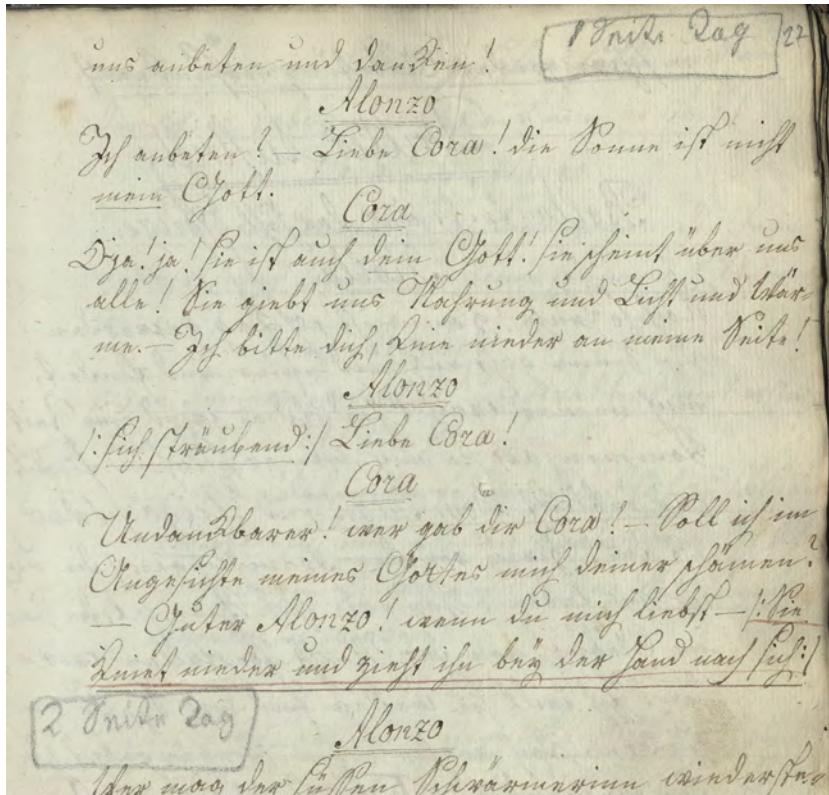 1 Seite Tag 27
uns anbeten und danken!
Alonzo
Ich anbeten? — Liebe Cora! die Sonne ist nicht
mein Gott.
Cora
O ja! ja! sie ist auch dein Gott! sie scheint über uns
alle! Sie giebt uns Nahrung und Licht und Wär-
me. — Ich bitte dich, knie nieder an meine Seite!
Alonzo
/: sich sträubend :/ Liebe Cora!
Cora
Undankbarer! wer gab dir Cora? — Soll ich im
Angesichte meines Gottes mich deiner schämen?
— Guter Alonzo! wenn du mich liebst — /: Sie
kniet nieder und zieht ihn bey der Hand nach sich :/
2 Seite Tag
Alonzo
Wer mag der süssen Schwärmerinn wiederste-